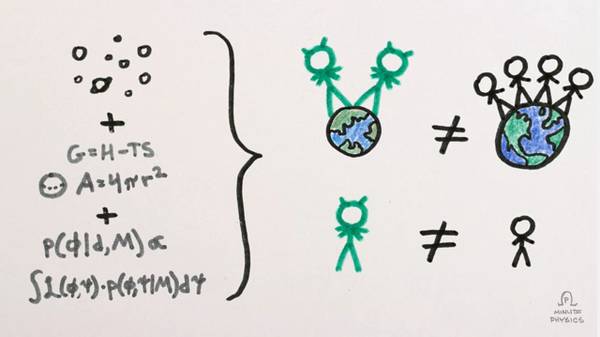 +
G=H-TS
A=4πr²
+
p(ϕ|d,M)∝
∫L(ϕ,ψ)·p(ϕ,ψ|M)dψ
≠
≠
MINUTE
PHYSICS